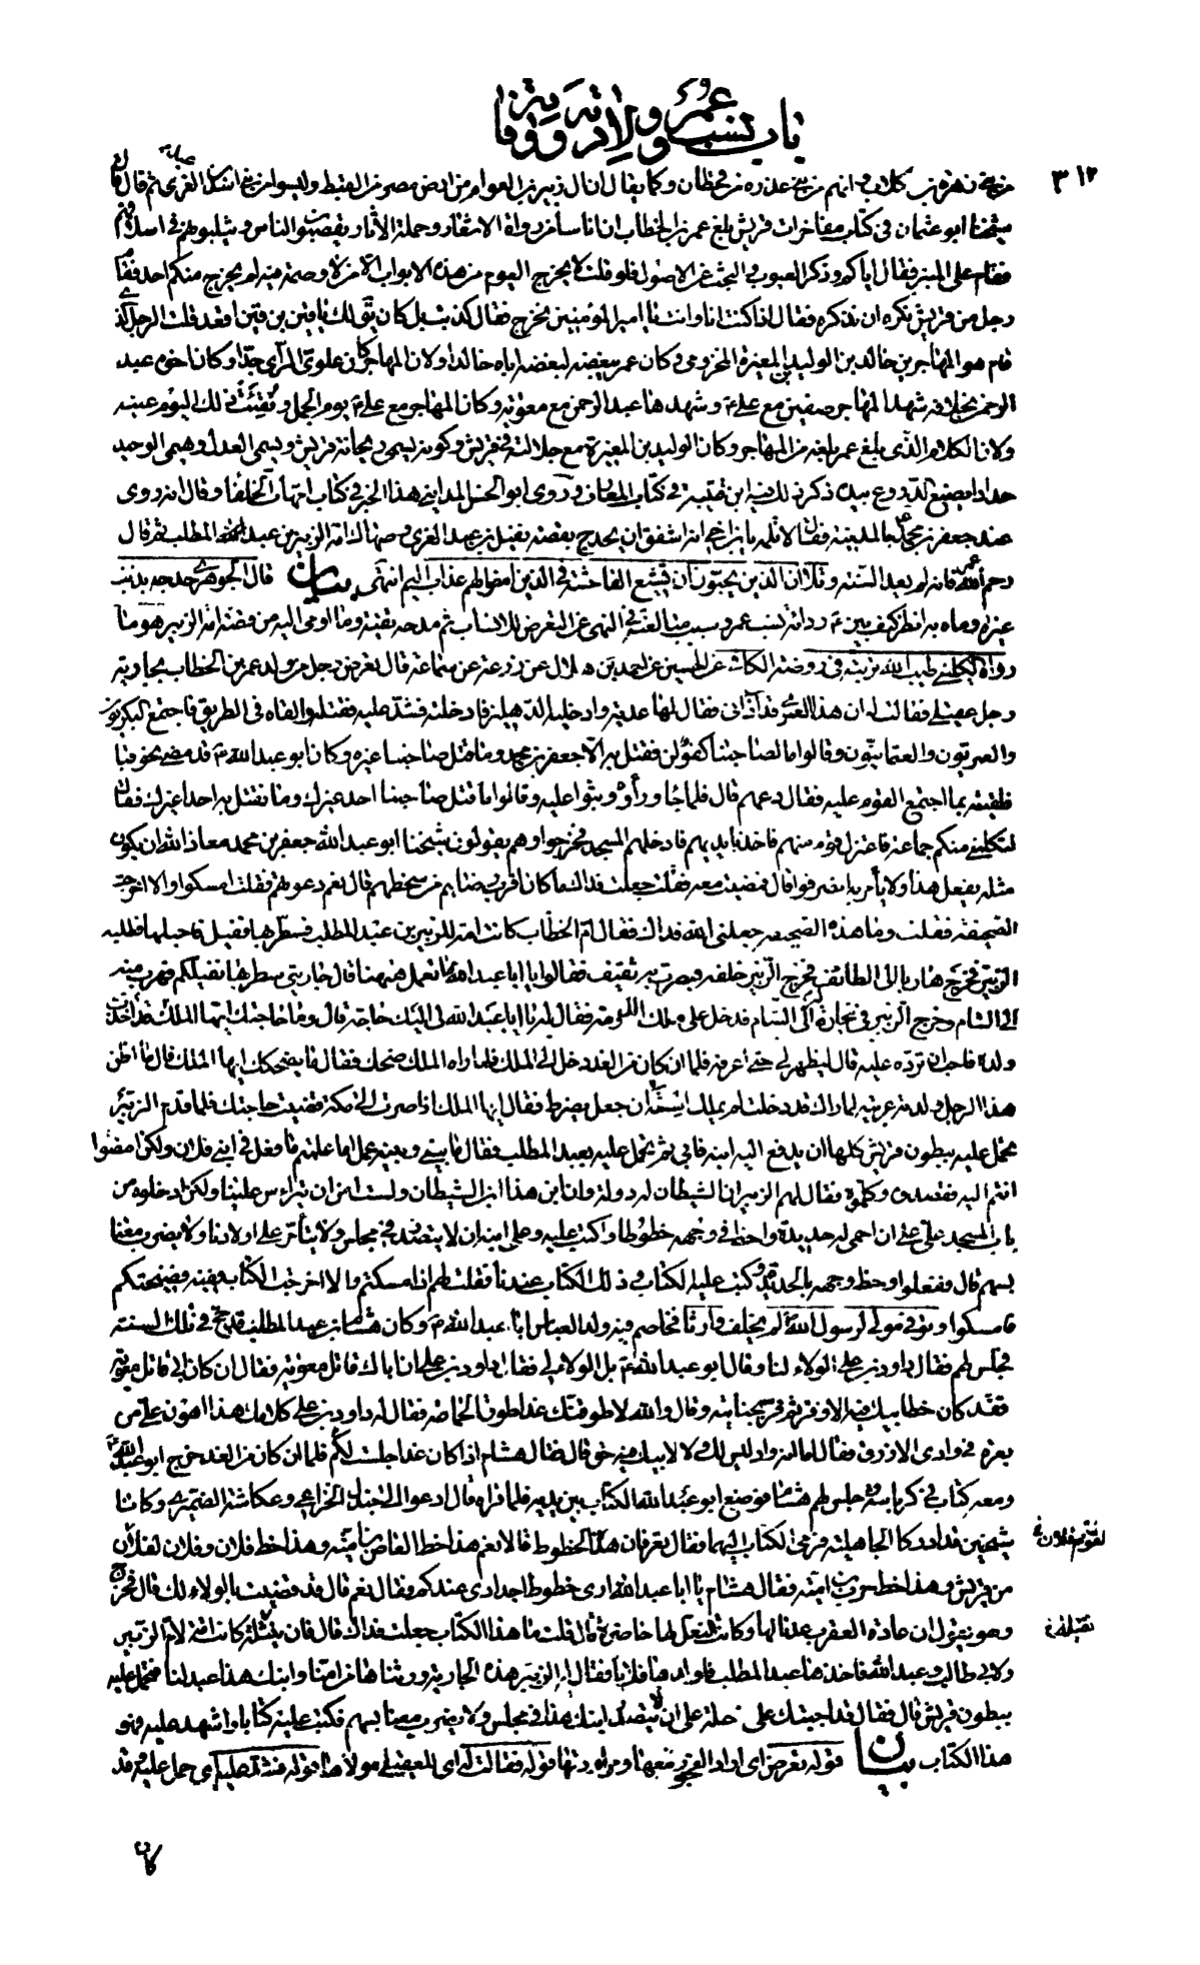 باب نسب عمر وولادته ووفاته
٣١٢
من بني زهرة بن كلاب وانهم من بني عذرة من قحطان وكما يقال ان ال زبير بن العوام من ارض مصر من القبط وليسوا من بني اسد بن العزى ثم قال قال
شيخنا ابو عثمان في كتاب مفاخرات قريش بلغ عمر بن الخطاب ان اناسا من رواة الاشعار وحملة الآثار يقصبون الناس ويثلبونهم في اسلافهم
فقام على المنبر فقال اياكم وذكر العيوب والبحث عن الاصول فلو قلت لا يخرج اليوم من هذه الابواب الا من لا وصمة فيه لم يخرج منكم احد فقام
رجل من قريش نكره ان نذكره فقال اذا كنت انا وانت يا امير المؤمنين نخرج فقال كذبت بل كان يقال لك يا قين بن قين اقعد قلت الرجل الذي
قام هو المهاجر بن خالد بن الوليد بن المغيرة المخزومي وكان عمر يبغضه لبغضه اباه خالدا ولان المهاجر كان علوي الرأي جدا وكان اخوه عبد
الرحمن بخلافه شهد المهاجر صفين مع علي ع وشهدها عبد الرحمن مع معوية وكان المهاجر مع علي ع يوم الجمل وفقئت ذلك اليوم عينه
ولان الكلام الذي بلغ عمر بلغه من المهاجر وكان الوليد بن المغيرة مع جلالته في قريش وكونه يسمى ريحانة قريش ويسمى العدل ويسمى الوحيد
حدادا يصنع الدروع بيده ذكر ذلك فيه ابن قتيبة في كتاب المعارف وروى ابو الحسن المدايني هذا الخبر في كتاب امهات الخلفا وقال انه روى
عند جعفر بن محمد ع بالمدينة فقال لا تلمه يا بن اخي انه اشفق ان يحدج بقضية نفيل بن عبد العزى وصهاك امة الزبير بن عبد المطلب ثم قال
رحم الله عمر فانه لم يعد السنة وتلا ان الذين يحبون ان تشيع الفاحشة في الذين امنوا لهم عذاب اليم انتهى بيان قال الجوهري حدجه بذنب
غيره رماه به انظر كيف بين ع رداءة نسب عمر وسبب مبالغته في النهي عن التعرض للانساب ثم مدحه تقية وما اومى اليه من قصة امة الزبير هو ما
رواه الكليني طيب الله تربته في روضة الكافي عن الحسين عن احمد بن هلال عن زرعة عن سماعة قال تعرض رجل من ولد عمر بن الخطاب بجارية
رجل عقيلي فقالت له ان هذا العمري قد آذاني فقال لها عديه وادخليه الدهليز فادخلته فشد عليه فقتله والقاه في الطريق فاجتمع البكريون
والعمريون والعثمانيون وقالوا ما لصاحبنا كفؤ لن نقتل به الا جعفر بن محمد وما قتل صاحبنا غيره وكان ابو عبد الله ع قد مضى نحو قبا
فلقيته بما اجتمع القوم عليه فقال دعهم قال فلما جاء ورأوه وثبوا عليه وقالوا ما قتل صاحبنا احد غيرك وما نقتل به احدا غيرك فقال
لتكلمني منكم جماعة فاعتزل قوم منهم فاخذ بايديهم فادخلهم المسجد فخرجوا وهم يقولون شيخنا ابو عبد الله جعفر بن محمد معاذ الله ان يكون
مثله يفعل هذا ولا يأمر به انصرفوا قال فمضيت معه فقلت جعلت فداك ما كان اقرب رضاهم من سخطهم قال نعم دعوتهم فقلت امسكوا والا اخرجت
الصحيفة فقلت وما هذه الصحيفة جعلني الله فداك فقال ام الخطاب كانت امة للزبير بن عبد المطلب فسطر بها نفيل فاحبلها فطلبه
الزبير فخرج هاربا الى الطائف فخرج الزبير خلفه فبصرت به ثقيف فقالوا يا ابا عبد الله ما تعمل هيهنا قال جاريتي سطر بها نفيلكم فهرب منه
الى الشام وخرج الزبير في تجارة له الى الشام فدخل على ملك الدومة فقال له يا ابا عبد الله لي اليك حاجة قال وما حاجتك ايها الملك فقال رجل من اهلك قد اخذت
ولده فاحب ان ترده عليه قال ليظهر لي حتى اعرفه فلما ان كان من الغد دخل الى الملك فلما رآه الملك ضحك فقال ما يضحكك ايها الملك قال ما اظن
هذا الرجل ولدته عربية لما رآك قد دخلت لم يملك استه ان جعل يضرط فقال ايها الملك اذا صرت الى مكة قضيت حاجتك فلما قدم الزبير
تحمل عليه ببطون قريش كلها ان يدفع اليه ابنه فابى ثم تحمل عليه بعبد المطلب فقال ما بيني وبينه عمل اما علمتم ما فعل في ابني فلان ولكن امضوا
انتم اليه فقصدوه وكلموه فقال لهم الزبير ان الشيطان له دولة وان ابن هذا ابن الشيطان ولست آمن ان يترأس علينا ولكن ادخلوه من
باب المسجد علي على ان احمي له حديدة واخط في وجهه خطوطا واكتب عليه وعلى ابنه ان لا يتصدر في مجلس ولا يتأمر على اولادنا ولا يضرب معنا
بسهم قال ففعلوا وخط وجهه بالحديدة وكتب عليه الكتاب وذلك الكتاب عندنا فقلت لهم ان امسكتم والا اخرجت الكتاب ففيه فضيحتكم
فامسكوا وتوفي مولى لرسول الله ص لم يخلف وارثا فخاصم فيه ولد العباس ابا عبد الله ع وكان هشام بن عبد الملك قد حج في تلك السنة
فجلس لهم فقال داود بن علي الولاء لنا وقال ابو عبد الله ع بل الولاء لي فقال داود بن علي ان اباك قاتل معوية فقال ان كان ابي قاتل معوية
فقد كان حظ ابيك فيه الاوفر ثم فر بجنايته وقال والله لاطوقنك غدا طوق الحمامة فقال له داود بن علي كلامك هذا اهون علي من
بعرة في وادي الازرق فقال اما انه واد ليس لك ولا لابيك فيه حق قال فقال هشام اذا كان غدا جلست لكم فلما ان كان من الغد خرج ابو عبد الله ع
ومعه كتاب في كرباسة وجلس لهم هشام فوضع ابو عبد الله الكتاب بين يديه فلما قرأه قال ادعوا لي جندل الخزاعي وعكاشة الضمري وكانا
شيخين قد ادركا الجاهلية فرمى الكتاب اليهما فقال تعرفان هذه الخطوط قالا نعم هذا خط العاص بن امية وهذا خط فلان وفلان لفلان
من قريش وهذا خط حرب بن امية فقال هشام يا ابا عبد الله ارى خطوط اجدادي عندكم فقال نعم قال قد قضيت بالولاء لك قال فخرج
وهو يقول ان عادت العقرب عدنا لها وكانت النعل لها حاضرة قال قلت ما هذا الكتاب جعلت فداك قال فان نثيلة كانت امة لام الزبير
ولابي طالب وعبد الله فاخذها عبد المطلب فاولدها فلانا فقال له الزبير هذه الجارية ورثناها من امنا وابنك هذا عبد لنا فتحمل عليه
ببطون قريش قال فقال قد اجبتك على خلة على ان لا يتصدر ابنك هذا في مجلس ولا يضرب معنا بسهم فكتب عليه كتابا واشهد عليه فهو
هذا الكتاب بيان قوله تعرض اي اراد الفجور معها ومراودتها قوله فقالت له اي للعقيلي مولاها قوله فشد عليه اي حمل عليه وقد